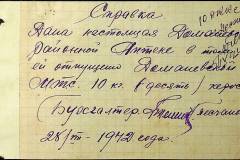 Справка
Дана настоящая Доманевской
Районной Аптеке в том, что
ей отпущено Доманевской
МТС. 10 кг. (десять) керос
Бухгалтер
28/III - 1942 года.